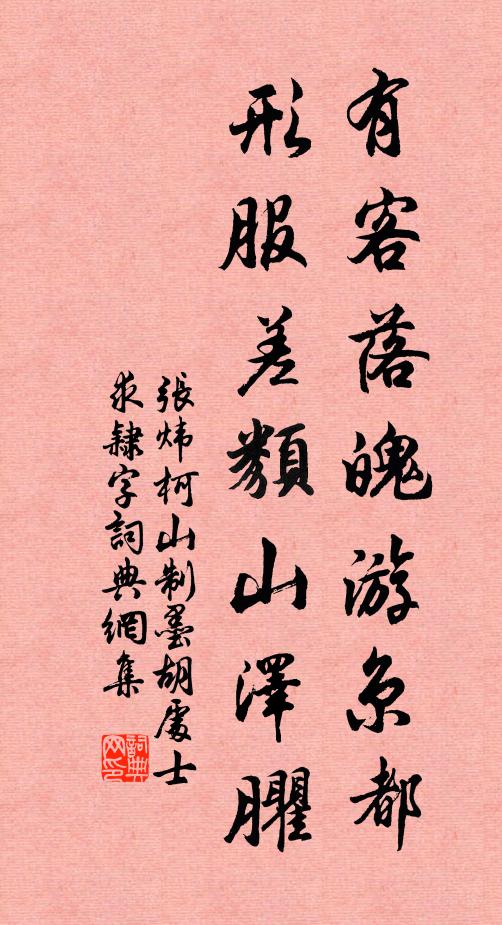 有客落魄游京都
形服差類山澤臞
張炜柯山制墨胡處士
求隸字詞典網集
詞典
网印